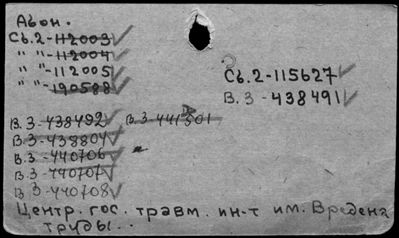 Абон.
Сб.2-112003
" "-112004
" "-112005
" "-190588
Сб.2-115627
В.3-438491
В.3-438492 В.3-441501
В.3-438804
В.3-440706
В.3-440707
В.3-440708
Центр. гос. травм. ин-т им. Вредена
труды..